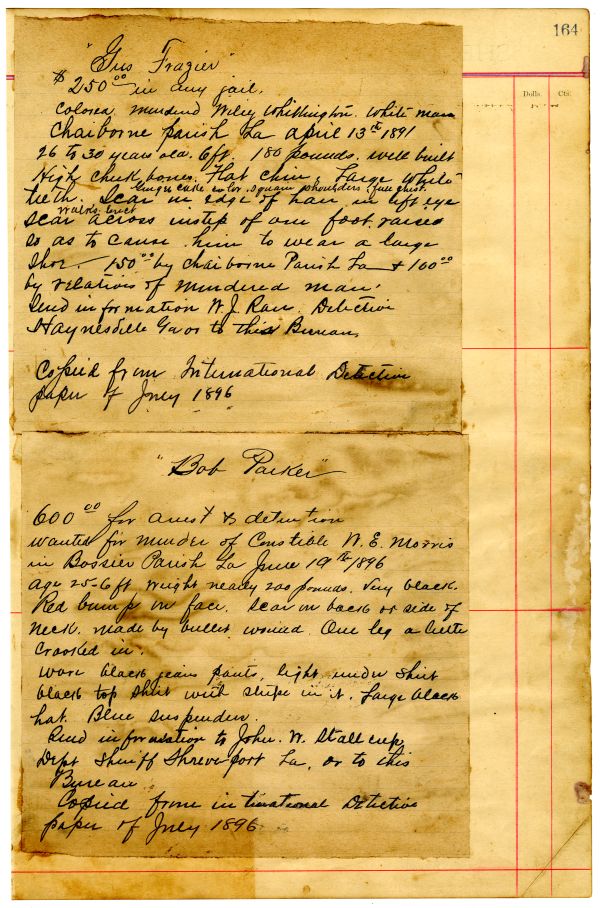 164
Dolls. Cts.
"Gus Frazier"
$250 00 in any jail.
Colored. murdered Wiley Whittington. White man
Claiborne parish La april 13th 1891
26 to 30 years old. 6ft. 180 pounds. well built
High cheek bones. Flat chin, Large white
Ginger cake color. square shoulders. full chest.
teeth. Scar in edge of hair in left eye
Walks erect
scar across instep of one foot. raised
so as to cause him to wear a large
shoe. 150 00 by Claiborne Parish La & 100 00
by relatives of murdered man.
Send information W. J. Detective
Haynesville or to this Bureau.
Copied from International Detective
paper of July 1896
"Bob Parker"
600 00 for arrest & detention
wanted for murder of Constable W. E. Morris
in Bossier Parish La June 19th 1896
age 25- 6ft weight nearly 200 pounds. Very black.
Red bump on face. Scar on back or side of
neck. made by bullet wound. One leg a little
crooked in.
wore black jeans pants, light under shirt
black top shirt with stripe in it. Large black
hat. Blue suspenders.
Send information to John. W. Stallcup,
Dept Sheriff Shreveport La, or to this
Bureau
Copied from international Detective
paper of July 1896